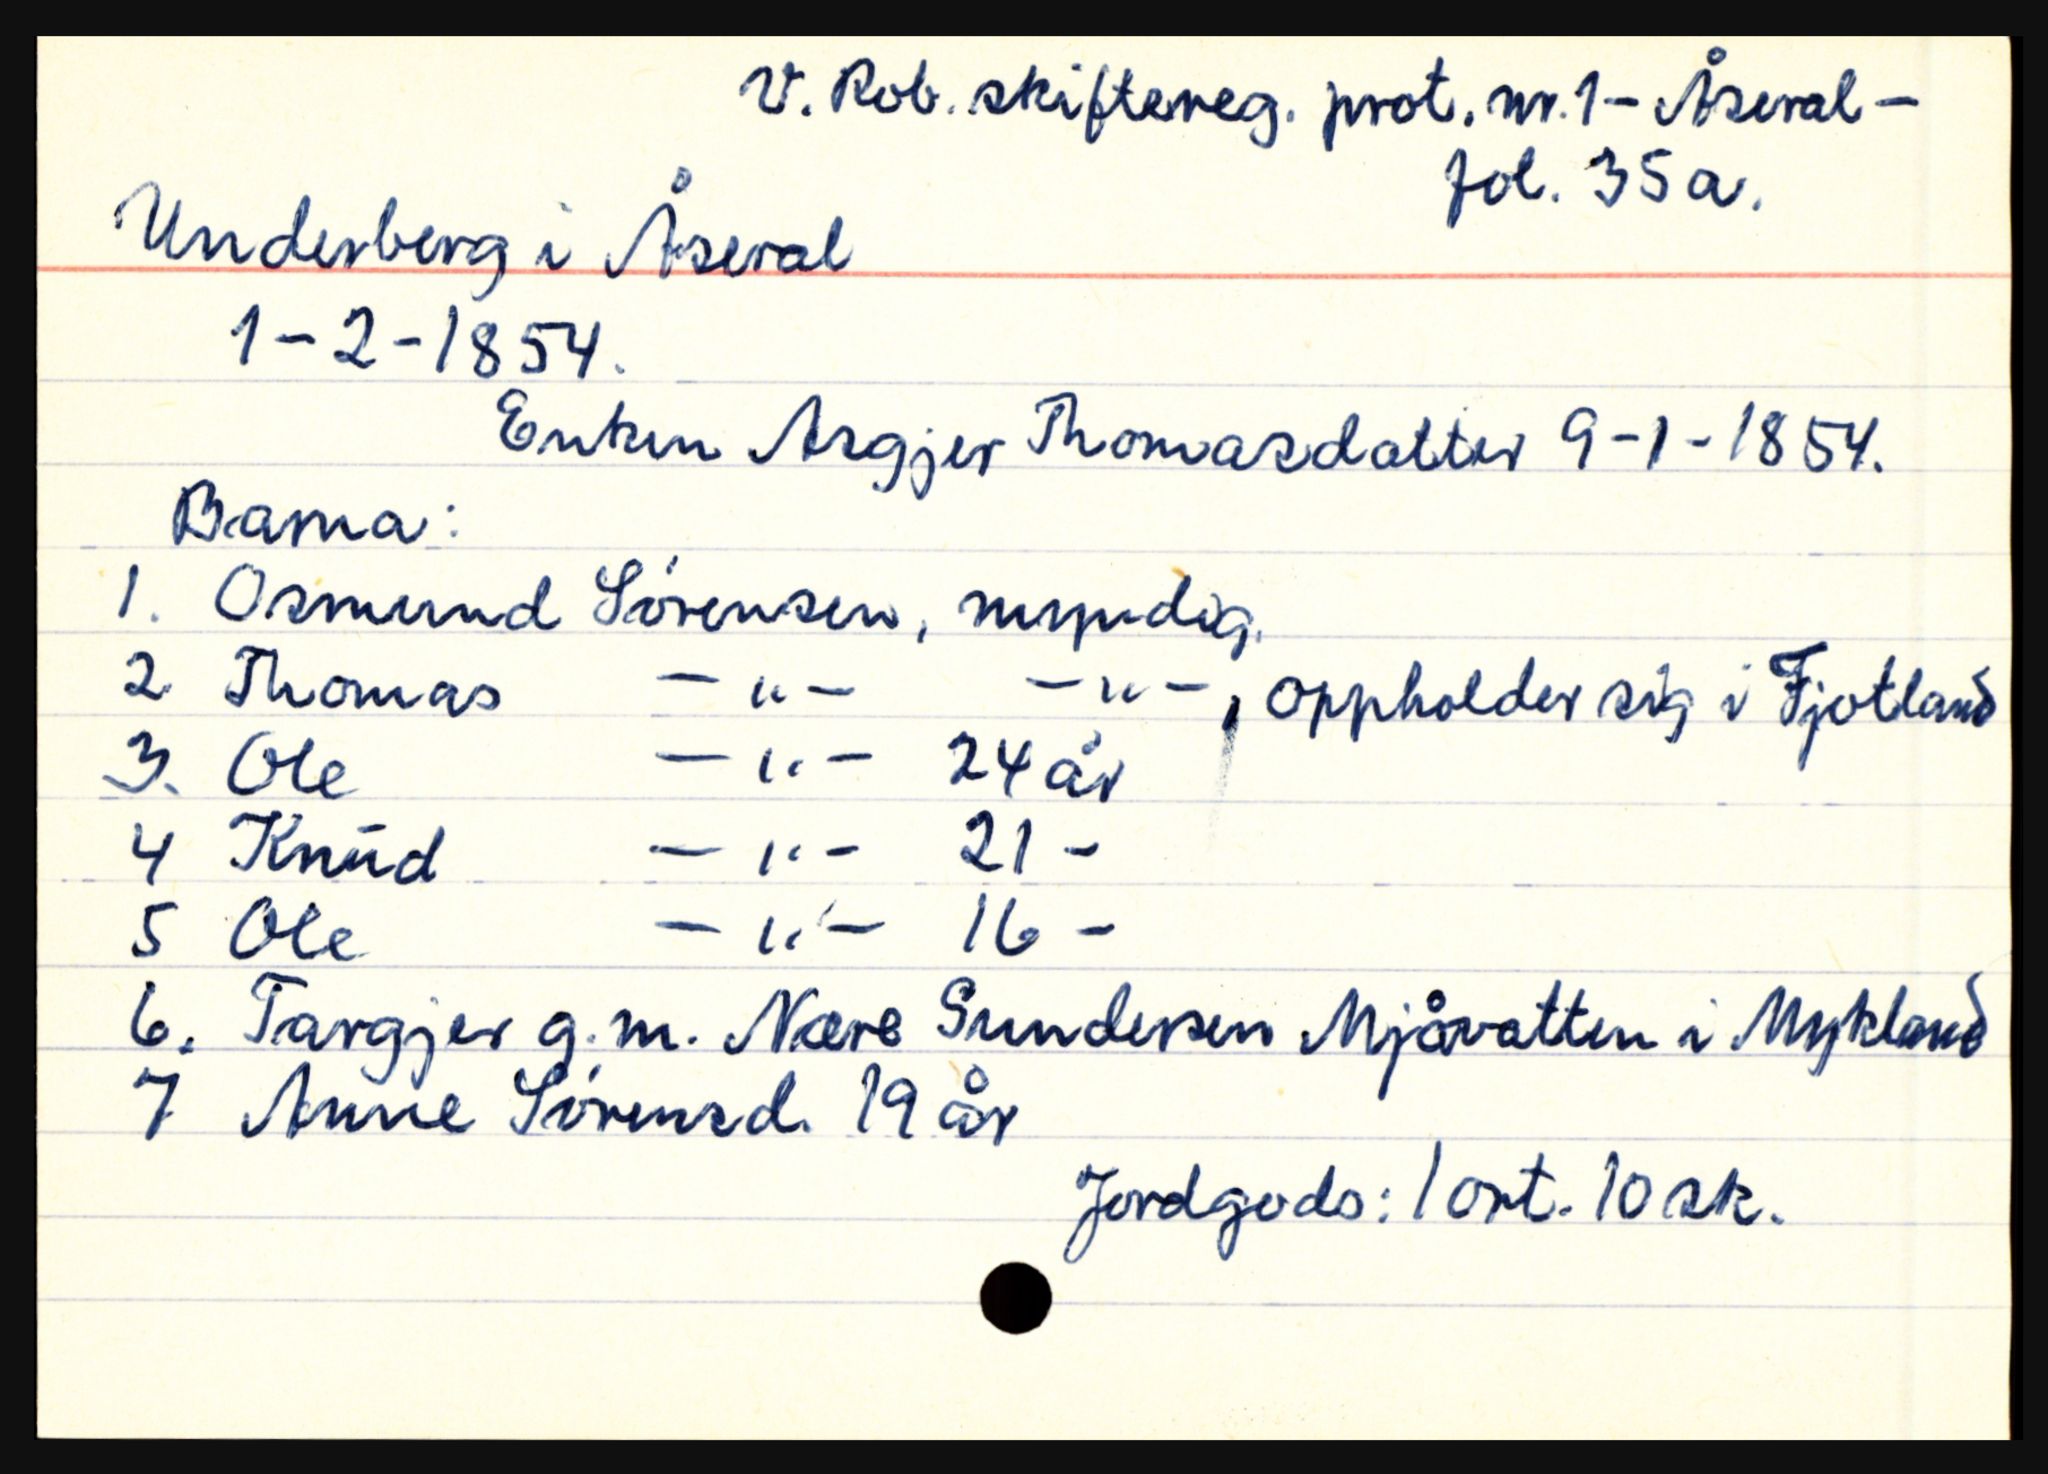 V. Rob. skiftereg. prot. nr. 1 - Åseral -
fol. 35a.
Underberg i Åseral
1-2-1854.
Enken Asgjer Thomasdatter 9-1-1854.
Barna:
1. Osmund Sørensen, myndig.
2 Thomas - " - - " -, oppholder sig i Fjotland
3. Ole - " - 24 år
4 Knud - " - 21 -
5 Ole - " - 16 -
6. Targjer g.m. Nære Gundersen Mjåvatten i Mykland
7 Anne Sørensd. 19 år
Jordgods: 1 ort. 10 sk.